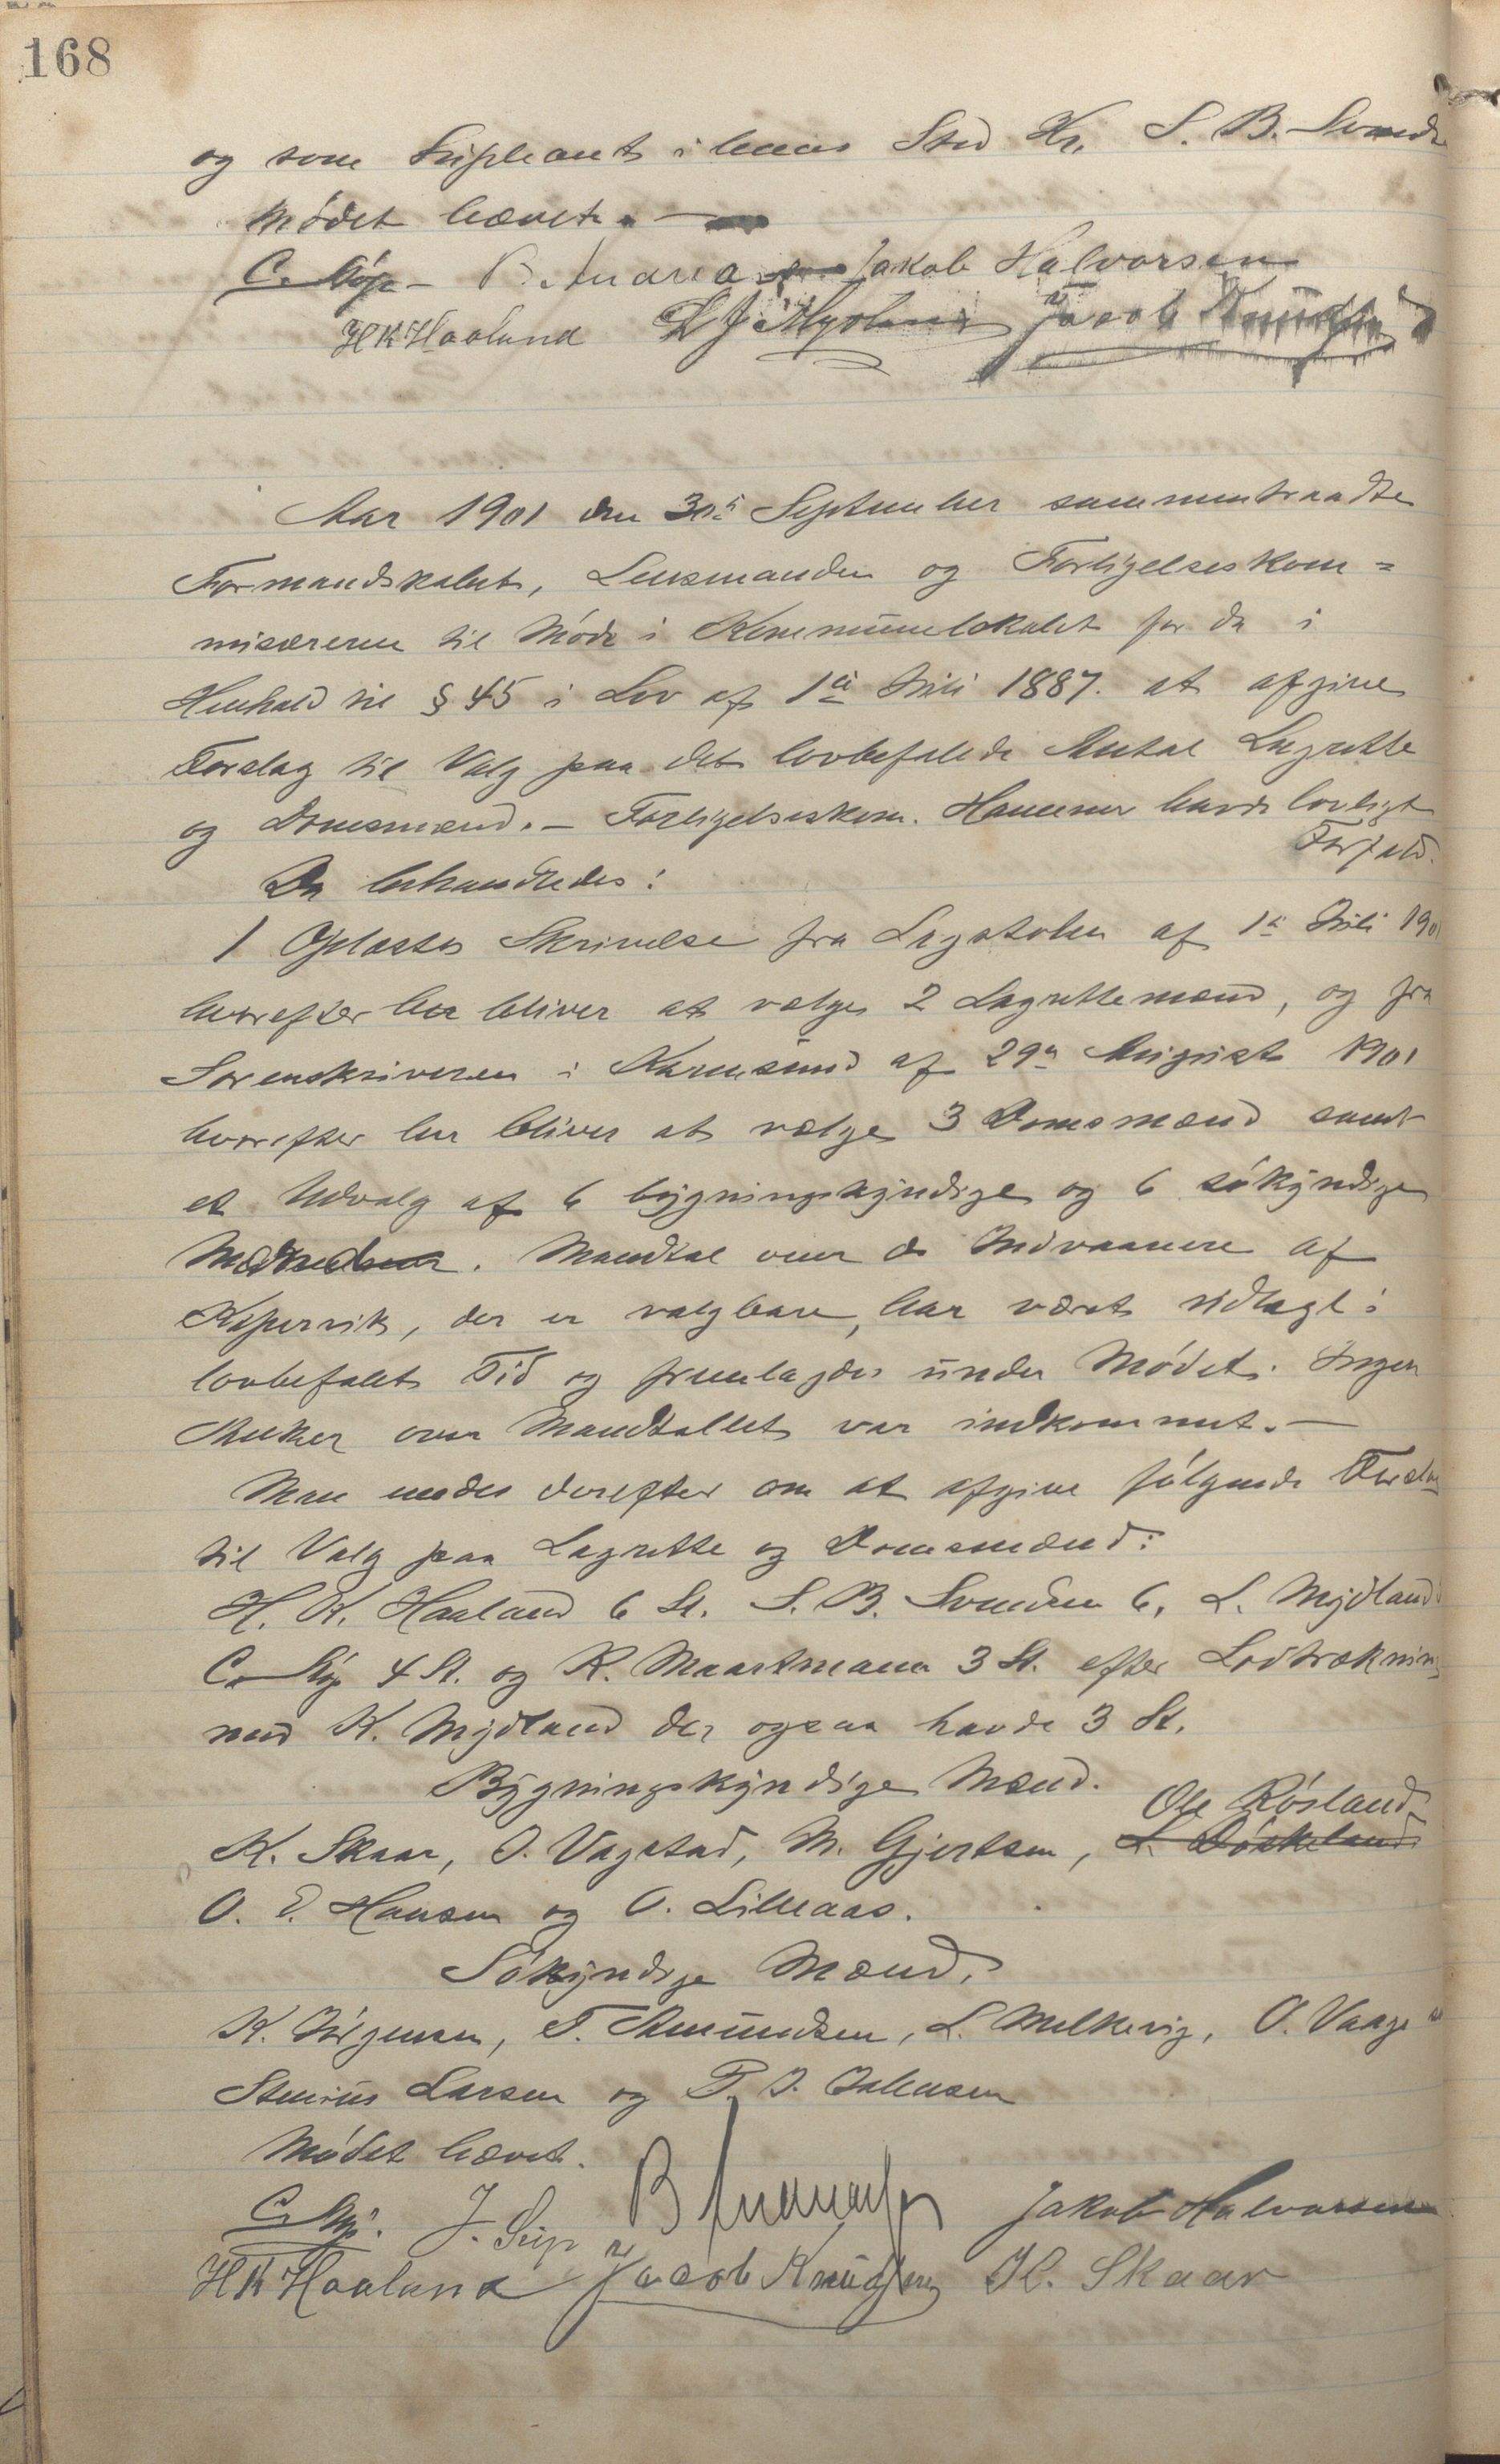 168
og som Supleant i hans Sted Hr. S. B. Svend
Mødet hævet. —
C. Stép B. Andrea Jakob Halvorsen
H K Haaland Jacob Knudsen
Aar 1901 den 30te September sammentraadte
Formandskabet, Lensmanden og Forligelseskom=
misæreren til Møde i Kommunelokalet for da i
Henhold til § 45 i Lov af 1te Juli 1887. at afgive
Forslag til Valg paa det lovbefalede Antal Lagrette
og Domsmænd. — Forligelseskom. Hammer havde lovligt
Forfald.
Da behandledes:
1 Oplæstes Skrivelse fra Lagstolen af 1te Juli 190
hvorefter her bliver at vælge 2 Lagrettemænd, og fra
Sorenskriveren i Karmsund af 29de August 1901
hvorefter her bliver at vælge 3 Domsmænd samt
et Udvalg af 6 bygningskyndige og 6 søkyndige
Mænd. Mandtal over de Indvaanere af
Kopervik, der er valgbare, har været udlagt i
lovbefalet Tid og fremlagdes under Mødet. Ingen
Anker over Mandtallet var indkommet. —
Man enedes derefter om at afgive følgende Forslag
til Valg paa Lagrette og Domsmænd:
H. K. Haaland 6 St. S. B. Svendsen 6, L. Mydland
C. Stép 4 St. og K. Maartmann 3 St. efter Lodtrækning
med K. Mydland der ogsaa havde 3 St.
Bygningskyndige Mænd.
Ole Røsland
K. Skaar, O. Vagstad, M. Gjertsen, L. Døskeland
O. E. Hansen og O. Lilleaas.
Søkyndige Mænd.
K. Jørgensen, T. Amundsen, L. Melkevig, O. Vaage
Stenius Larsen og P. J.
Mødet hævet.
C. Stép. J. Seip B Andreassen Jakob Halvorsen
H K Haaland Jacob Knudsen K. Skaar